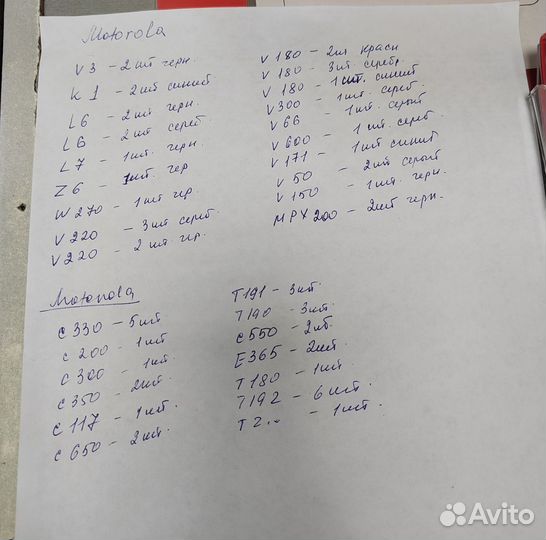 Motorola
V3 - 2 шт черн.
K1 - 2 шт синий
L6 - 2 шт черн.
L6 - 2 шт сереб
L7 - 1 шт. черн
Z6 - 1 шт. чер
W270 - 1 шт чер.
V220 - 3 шт. сереб
V220 - 2 шт. чер.
V180 - 2 шт красн
V180 - 3 шт. серебр.
V180 - 1 шт. синий
V300 - 1 шт. сереб.
V66 - 1 шт. серый
V600 - 1 шт. сереб.
V171 - 1 шт синий
V50 - 2 шт серый
V150 - 1 шт. черн.
MPX200 - 2 шт черн.
Motorola
C330 - 5 шт
C200 - 1 шт
C300 - 1 шт.
C350 - 2 шт.
C117 - 1 шт.
C650 - 2 шт.
T191 - 3 шт.
T190 - 3 шт.
C550 - 2 шт.
E365 - 2 шт.
T180 - 1 шт
T192 - 6 шт.
T2.. - 1 шт.
Avito